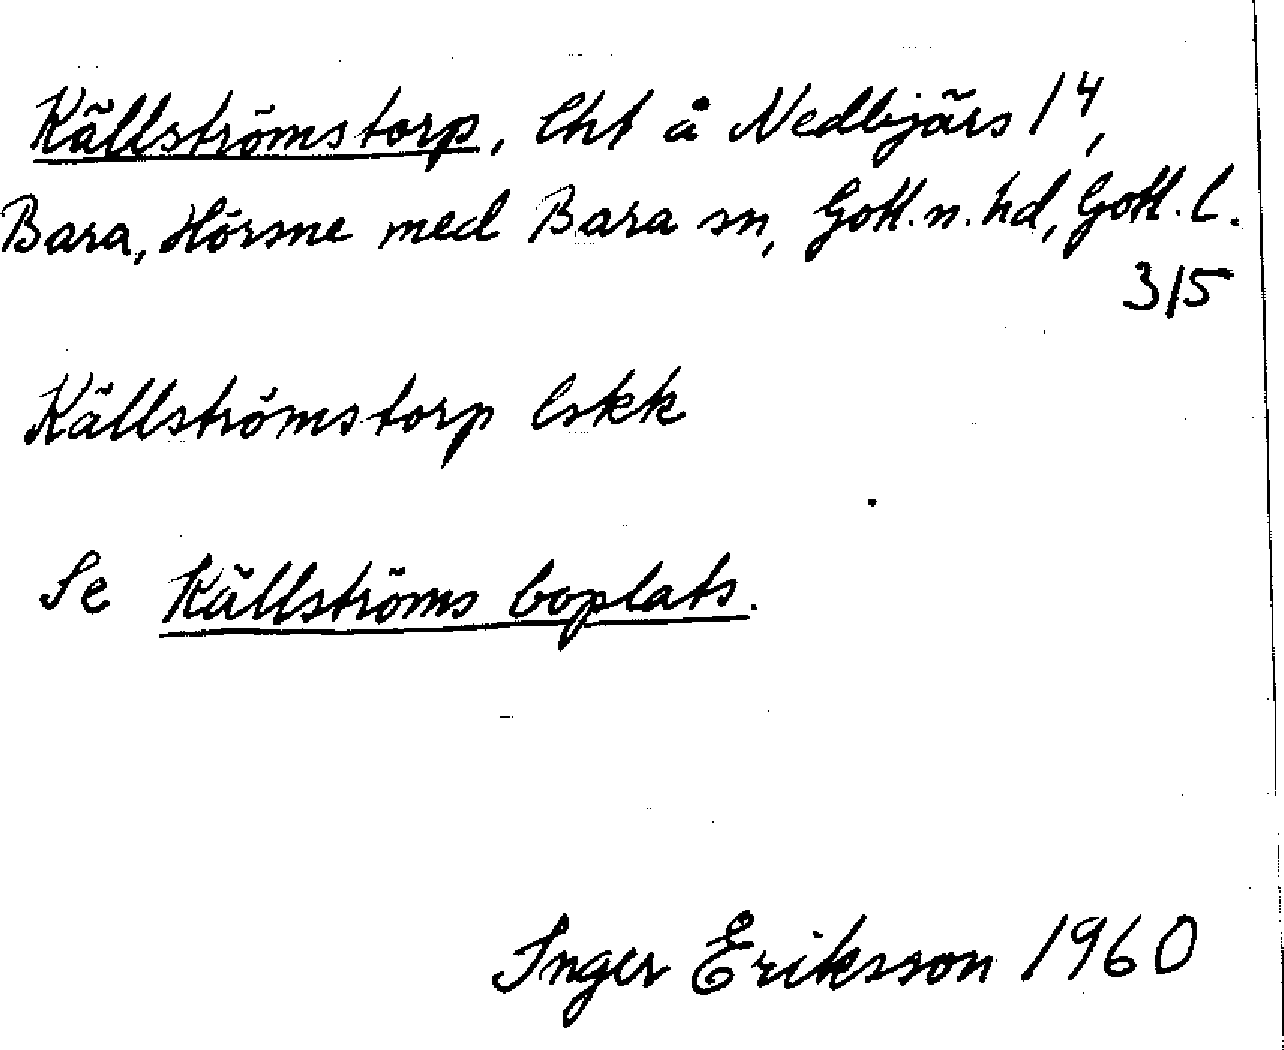 Källströmstorp, lht å Nedbjärs 1⁴,
Bara, Hörsne med Bara sn, Gotl. n. hd, Gotl. l.
3/5
Källströmstorp lskk
Se Källströms boplats.
Inger Eriksson 1960